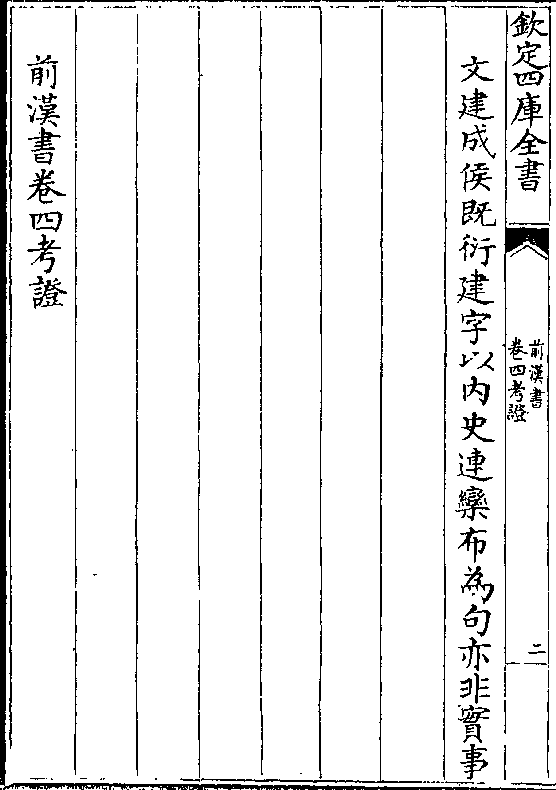 欽定四庫全書
前漢書
卷四考證
二
文建成侯既衍建字以内史連欒布為句亦非實事
前漢書卷四考證